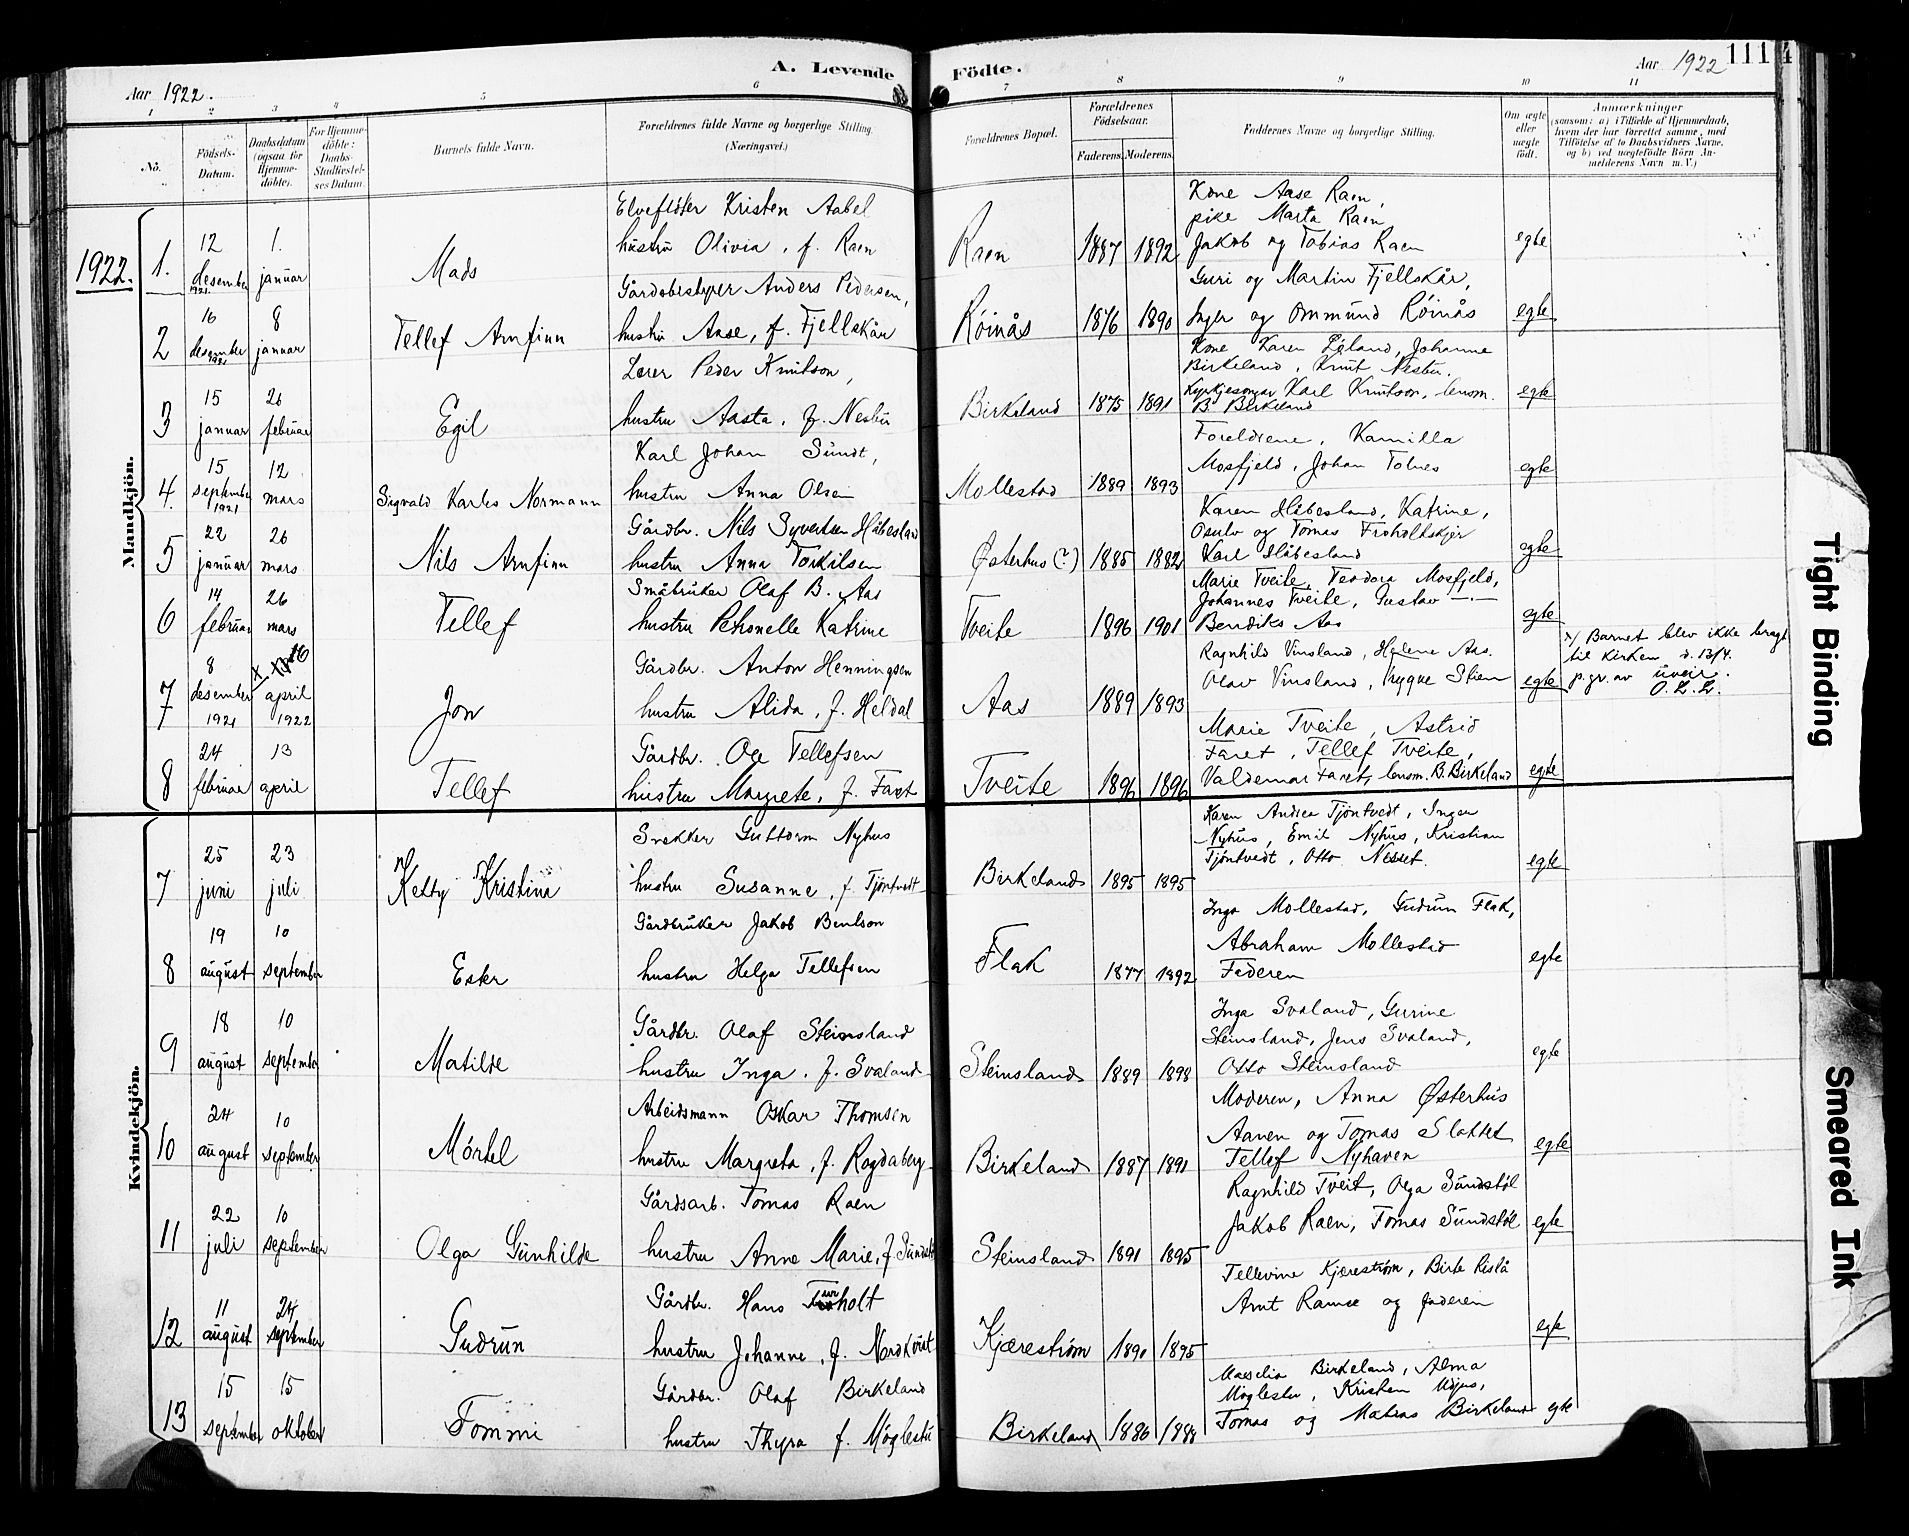 A. Levende Födte.
Aar 1922.
Aar 1922
111
4
1 2 3 4 5 6 7 8 9 10 11
No.
Födsels-Datum.
Daabsdatum (ogsaa för Hjemme-döbte).
For Hjemme-döbte: Daabs-Stadfæstel-ses Datum.
Barnets fulde Navn.
Forældrenes fulde Navne og borgerlige Stilling. (Næringsvei.)
Forældrenes Bopæl.
Forældrenes Födselsaar.
Faderens. Moderens.
Faddernes Navne og borgerlige Stilling.
Om ægte eller uægte födt.
Anmærkninger
(saasom: a) i Tilfælde af Hjemmedaab, hvem der har forrettet samme, med Tilföielse af to Daabsvidners Navne, og b) ved uægtefödte Börn Anmelderens Navn m. V.)
1922.
Mandkjön.
1. 12 desember 1921. 1. januar Mads
Elvefløter Kristen Aabel
hustru Olivia, f. Raen
Raen 1887 1892
Kone Aase Raen,
pike Marta Raen
Jakob og Tobias Raen
egte
2 16 desember 1921 8 januar Tellef Arnfinn
Gårdbestyrer Anders Pedersen,
hustru Aase, f. Fjellskår
Røinås 1876 1890
Guri og Martin Fjellskår,
Inger og Ommund Røinås
egte
3 15 januar 26 februar Egil
Lærer Peder Knutson,
hustru Aasta, f. Nesbu
Birkeland 1875 1891
Kone Karen Eeland, Johanne
Birkeland, Knut Nesbu.
Kyrkjesongar Karl Knutson, lensm.
B. Birkeland
egte
4. 15 september 1921 12 mars Sigvald Karles Normann
Karl Johan Sundt,
hustru Anna Olsen
Mollestad 1889 1893
Foreldrene, Kamilla
Mosfjeld, Johan Tolnes
egte
5 22 januar 26 mars Nils Arnfinn
Gårdbr. Nils Syvertsen Håbesland
hustru Anna Torkilsen
Østerhus (?) 1885 1882
Karen Håbesland, Katrine,
Osulv og Tomas Froholtskjer
Karl Håbesland
egte
6 14 februar 26 mars Tellef
Småbruker Olaf B. Aas
hustru Petronelle Katrine
Tveite 1896 1901
Marie Tveite, Teodora Mosfjeld,
Johannes Tveite, Gustav —.—
Bendiks Aas
egte
7 8 desember 1921 x 16 april 1922 Jon
Gårdbr. Anton Henningsen
hustru Alida, f. Heldal
Aas 1889 1893
Ragnhild Vinsland, Helene Aas.
Olav Vinsland, Trygve Stien
egte
x/ Barnet blev ikke bragt
til kirken d. 13/4.
p. gr. av uveir.
8 24 februar 13 april Tellef
Gårdbr. Ole Tellefsen
hustru Margrete, f. Faret
Tveite 1896 1896
Marie Tveite, Astrid
Faret, Tellef Tveite,
Valdemar Faret, lensm. B. Birkeland
egte
Kvindekjön.
7 25 juni 23 juli Ketty Kristina
Snekker Guttorm Nyhus
hustru Susanne, f. Tjøntvedt
Birkeland 1895 1895
Karen Andrea Tjøntvedt, Inger
Nyhus, Emil Nyhus, Kristian
Tjøntvedt, Otto Nesset.
egte
8 19 august 10 september Ester
Gårdbruker Jakob Bentson
hustru Helga Tellefsen
Flak 1877 1892
Inga Mollestad, Gudrun Flak,
Abraham Mollestad
Faderen
egte
9 18 august 10 september Matilde
Gårdbr. Olaf Steinsland
hustru Inga, f. Svaland
Steinsland 1889 1898
Inga Svaland, Gurine
Steinsland, Jens Svaland,
Otto Steinsland
egte
10 24 august 10 september Mørtel
Arbeidsmann Oskar Thomsen
hustru Margreta, f. Rogdaberg
Birkeland 1887 1891
Moderen, Anna Østerhus
Aanen og Tomas Slottet
Tellef Nyhaven
egte
11 22 juli 10 september Olga Gunhilde
Gårdsarb. Tomas Raen
hustru Anne Marie, f. Sundstøl
Steinsland 1891 1895
Ragnhild Tveit, Olga Sundstøl
Jakob Raen, Tomas Sundstøl
egte
12 11 august 24 september Gudrun
Gårdbr. Hans holt
hustru Johanne, f. Nordkvist
Kjærestrøm 1890 1895
Tellevine Kjærestrøm, Birte Rislå
Arnt Ramse og faderen
egte
13 15 september 15 oktober Tommi
Gårdbr. Olaf Birkeland
hustru Thyra f. Møglestu
Birkeland 1886 1888
Birkeland, Alma
Møglestu, Kristen
Tomas og Matias Birkeland
egte
Tight Binding
Smeared Ink